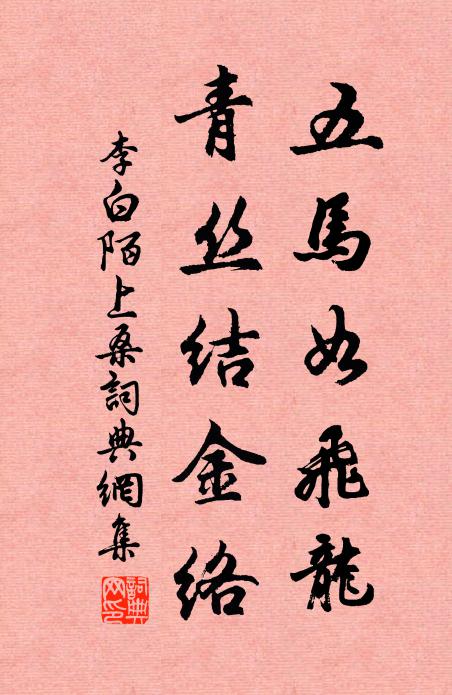 五馬如飛龍
青丝结金络
李白陌上桑詞典網集
詞典網印